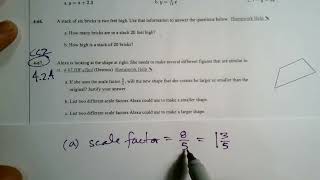 4-66. A stack of six bricks is two feet high. Use this information to answer the questions below. Homework Help
a. How many bricks are in a stack 20 feet high?
b. How high is a stack of 20 bricks?
4.2.4
Alexa is looking at the shape at right. She needs to make several different figures that are similar to it.
(Desmos) Homework Help
a. If she uses the scale factor, will the new shape that she creates be larger or smaller than the original? Justify your answer
b. List two different scale factors Alexa could use to make a smaller shape.
c. List two different scale factors Alexa could use to make a larger shape.
(a) scale factor = 8/5 = 1 3/5